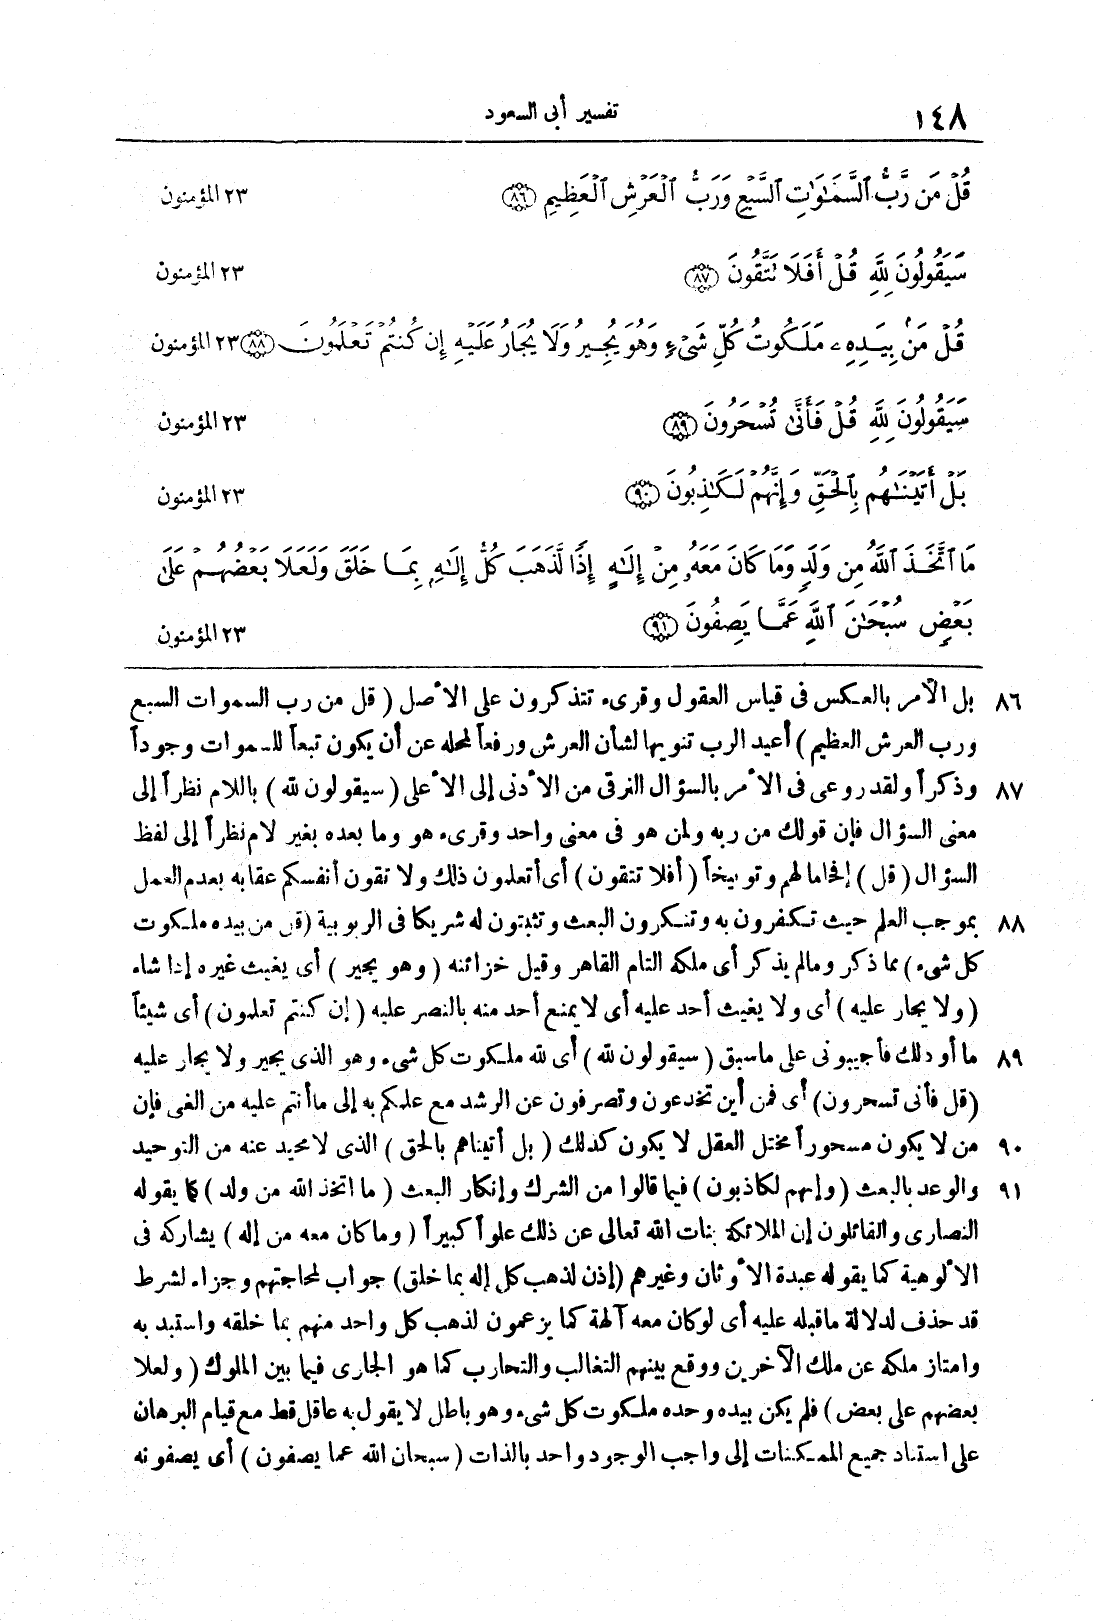 ١٤٨ تفسير أبى السعود
قُلْ مَن رَّبُّ ٱلسَّمَٰوَٰتِ ٱلسَّبْعِ وَرَبُّ ٱلْعَرْشِ ٱلْعَظِيمِ ﴿٨٦﴾ ٢٣ المؤمنون
سَيَقُولُونَ لِلَّهِ قُلْ أَفَلَا تَتَّقُونَ ﴿٨٧﴾ ٢٣ المؤمنون
قُلْ مَنۢ بِيَدِهِۦ مَلَكُوتُ كُلِّ شَىْءٍ وَهُوَ يُجِيرُ وَلَا يُجَارُ عَلَيْهِ إِن كُنتُمْ تَعْلَمُونَ ﴿٨٨﴾ ٢٣ المؤمنون
سَيَقُولُونَ لِلَّهِ قُلْ فَأَنَّىٰ تُسْحَرُونَ ﴿٨٩﴾ ٢٣ المؤمنون
بَلْ أَتَيْنَٰهُم بِٱلْحَقِّ وَإِنَّهُمْ لَكَٰذِبُونَ ﴿٩٠﴾ ٢٣ المؤمنون
مَا ٱتَّخَذَ ٱللَّهُ مِن وَلَدٍ وَمَا كَانَ مَعَهُۥ مِنْ إِلَٰهٍ إِذًا لَّذَهَبَ كُلُّ إِلَٰهٍۭ بِمَا خَلَقَ وَلَعَلَا بَعْضُهُمْ عَلَىٰ
بَعْضٍ سُبْحَٰنَ ٱللَّهِ عَمَّا يَصِفُونَ ﴿٩١﴾ ٢٣ المؤمنون
٨٦ بل الآمر بالعكس فى قياس العقول وقرىء تتذكرون على الأصل (قل من رب السموات السبع
ورب العرش العظيم) أعيد الرب تنويها لشأن العرش ورفعاً لمحله عن أن يكون تبعاً للسموات وجوداً
٨٧ وذكراً ولقد روعى فى الأمر بالسؤال الترقى من الأدنى إلى الأعلى (سيقولون لله) باللام نظراً إلى
معنى السؤال فإن قولك من ربه ولمن هو فى معنى واحد وقرىء هو وما بعده بغير لام نظراً إلى لفظ
السؤال (قل) إفحاما لهم وتوبيخاً (أفلا تتقون) أى أتعلمون ذلك ولا تقون أنفسكم عقابه بعدم العمل
٨٨ بموجب العلم حيث تكفرون به وتنكرون البعث وتثبتون له شريكا فى الربوبية (قل من بيده ملكوت
كل شىء) مما ذكر ومالم يذكر أى ملكه التام القاهر وقيل خزائنه (وهو يجير) أى يغيث غيره إذا شاء
(ولا يجار عليه) أى ولا يغيث أحد عليه أى لا يمنع أحد منه بالنصر عليه (إن كنتم تعلمون) أى شيئاً
٨٩ ما أو ذلك فأجيبونى على ماسبق (سيقولون لله) أى لله ملكوت كل شىء وهو الذى يجير ولا يجار عليه
(قل فأنى تسحرون) أى فمن أين تخدعون وتصرفون عن الرشد مع علمكم به إلى ما أنتم عليه من الغى فإن
٩٠ من لا يكون مسحوراً مختل العقل لا يكون كذلك (بل أتيناهم بالحق) الذى لا محيد عنه من التوحيد
٩١ والوعد بالبعث (وإنهم لكاذبون) فيما قالوا من الشرك وإنكار البعث (ما اتخذ الله من ولد) كما يقوله
النصارى والقائلون إن الملائكة بنات الله تعالى عن ذلك علواً كبيراً (وما كان معه من إله) يشاركه فى
الألوهية كما يقوله عبدة الأوثان وغيرهم (إذن لذهب كل إله بما خلق) جواب لمحاجتهم وجزاء لشرط
قد حذف لدلالة ماقبله عليه أى لو كان معه آلهة كما يزعمون لذهب كل واحد منهم بما خلقه واستبد به
وامتاز ملكه عن ملك الآخرين ووقع بينهم التغالب والتحارب كما هو الجارى فيما بين الملوك (ولعلا
بعضهم على بعض) فلم يكن بيده وحده ملكوت كل شىء وهو باطل لا يقول به عاقل قط مع قيام البرهان
على استناد جميع الممكنات إلى واجب الوجود واحد بالذات (سبحان الله عما يصفون) أى يصفونه